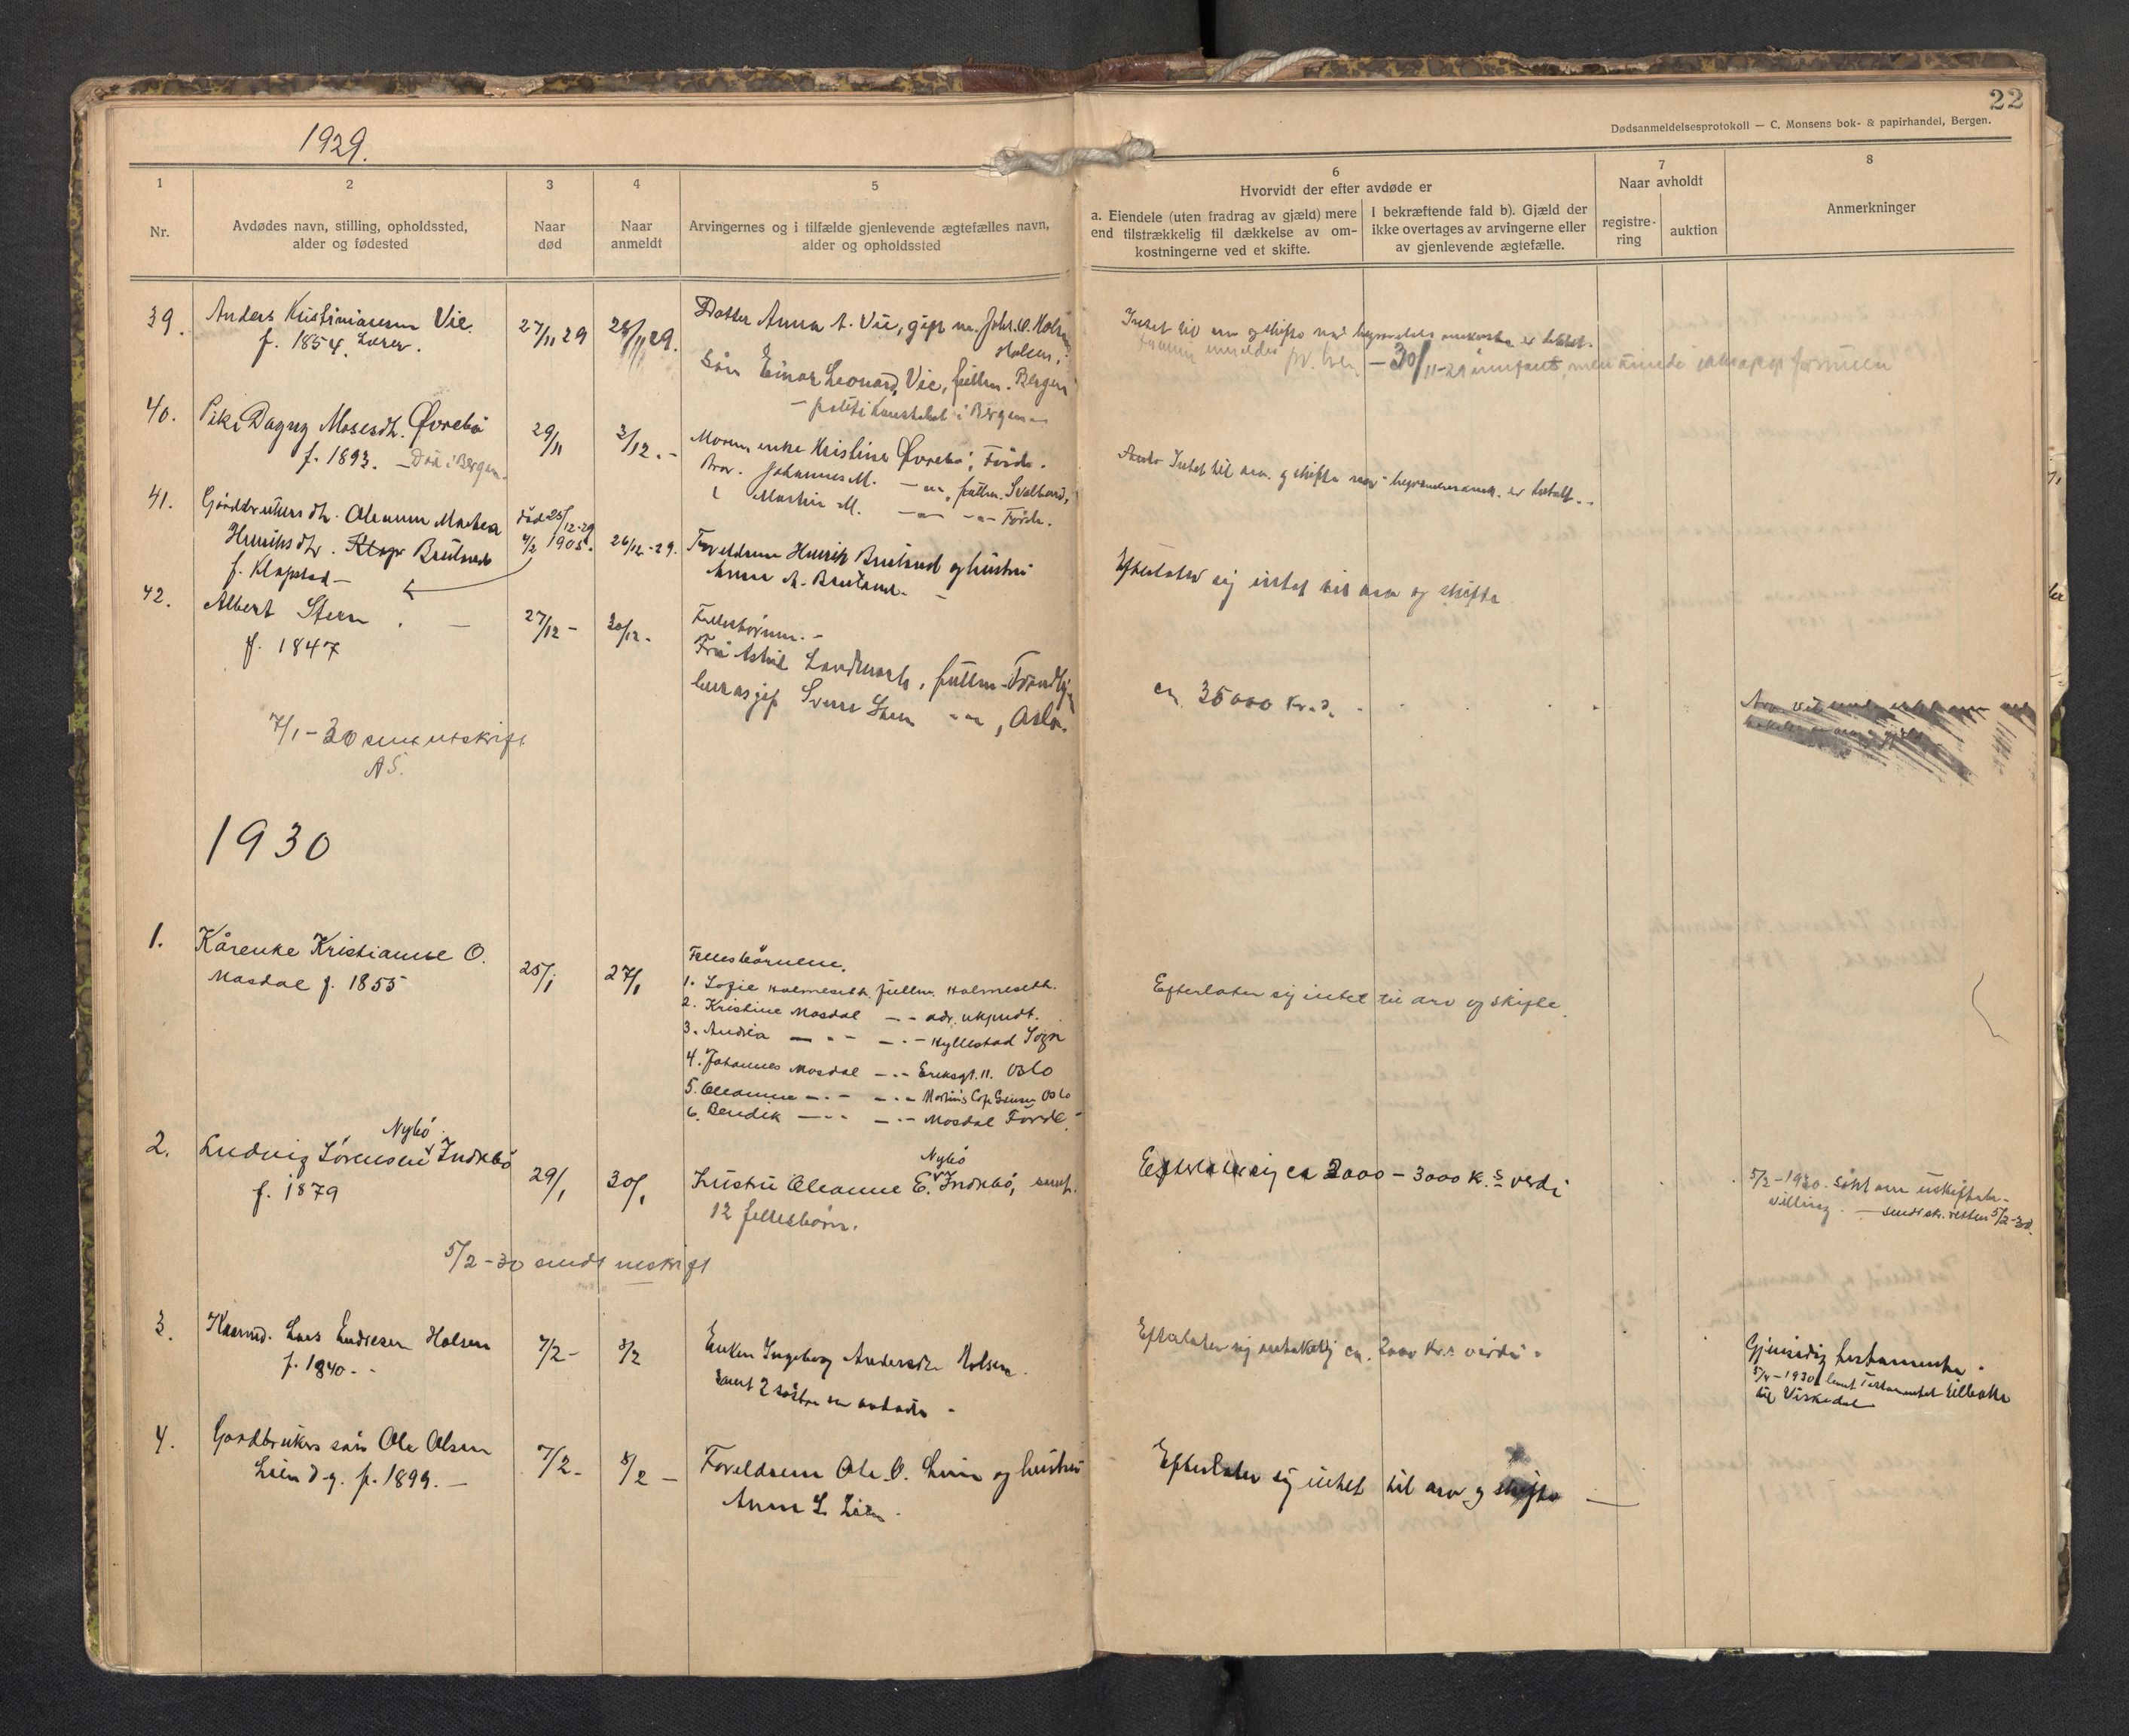 22
Dødsanmeldelsesprotokoll — C. Monsens bok- & papirhandel, Bergen.
1929.
1 2 3 4 5 6 7 8
Nr.
Avdødes navn, stilling, opholdssted,
alder og fødested
Naar
død
Naar
anmeldt
Arvingernes og i tilfælde gjenlevende ægtefælles navn,
alder og opholdssted
Hvorvidt der efter avdøde er
a. Eiendele (uten fradrag av gjæld) mere
end tilstrækkelig til dækkelse av om-
kostningerne ved et skifte.
I bekræftende fald b). Gjæld der
ikke overtages av arvingerne eller
av gjenlevende ægtefælle.
Naar avholdt
registre-
ring
auktion
Anmerkninger
39.
Anders Kristiansen Vie.
f. 1854. Lærer.
27/11 29
28/11 29.
Datter Anna A. Vie, gift m. Joh. O. Holsen
Holsen,
Søn Einar Leonard Vie, fullm. Bergen
- politikonstabel i Bergen -
Intet til arv og skifte når begravelses omkostn. er betalt.
30/11-29
40.
Pike Dagny Mosesdtr. Øvrebö
f. 1893. - Död i Bergen.
29/11
3/12. -
Moren enke Kristine Øvrebö, Förde.
Bror. Johannes M. - " - , fullm. Svalbard,
Martin M. - " - - " - Förde.
Intet til arv og skifte når begravelsesomk. er betalt. -
41.
Gårdbrukersdtr. Oleanna Mathea
Henriksdtr. Klop Bruland
f. Klopstad -
død 25/12-29
4/2 1905.
26/12-29.
Foreldrene Henrik Bruland og hustru
Anna A. Bruland. -
Efterlater sig intet til arv og skifte
42.
Albert Stern. -
f. 1847
27/12 -
30/12 -
Fellesbörnene. -
Fru Astrid Landmark, fullm.
Sverre Stern - " - , Oslo.
ca. 35000 Kr.
7/1-30 sent utskrift
AS.
1930
1.
Kårenke Kristianne O.
Mosdal f. 1855
25/1
27/1
Fellesbörnene.
1. Sofie Holmeseth. fullm. Holmeseth.
2. Kristine Mosdal - - adr. ukjendt.
3. Andrea — " - - " - Hyllestad Sogn
4. Johannes Mosdal - " - Eriksgt. 11. Oslo
5. Oleanna - " - - " - Oslo
6. Bendik — " - - " - Mosdal Förde.
Efterlater sig intet til arv og skifte.
2.
Nybö
Ludvig Sörensen Indrebö
f. 1879
29/1
30/1
Nybö
Hustru Oleanne E. Indrebö, samt.
12 fellesbörn.
Efterlater sig ca 2000 - 3000 K.s verdi
5/2-1930. sökt om uskifteбe-
villing. — sendt sk.retten 5/2-30.
5/2-30 sendt utskrift
3.
Kaarmd. Lars Endresen Holsen
f. 1840. -
7/2 -
8/2
Enken Ingeborg Andersdtr. Holsen.
samt 2 søstre av avdøde -
Efterlater sig antakelig ca. 2000 Kr.s verdi.
Gjensidig testamente.
5/4-1930 sent testamentet tilbake
til Viskedal
4.
Gardbrukers sön Ole Olsen
Lien d.y. f. 1899. -
7/2 -
8/2 -
Foreldrene Ole O. Lien og hustru
Anna L. Lien.
Efterlater sig intet til arv og skifte —